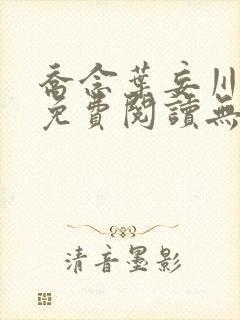 喬念葉妄川
免費閱讀無
清音墨影